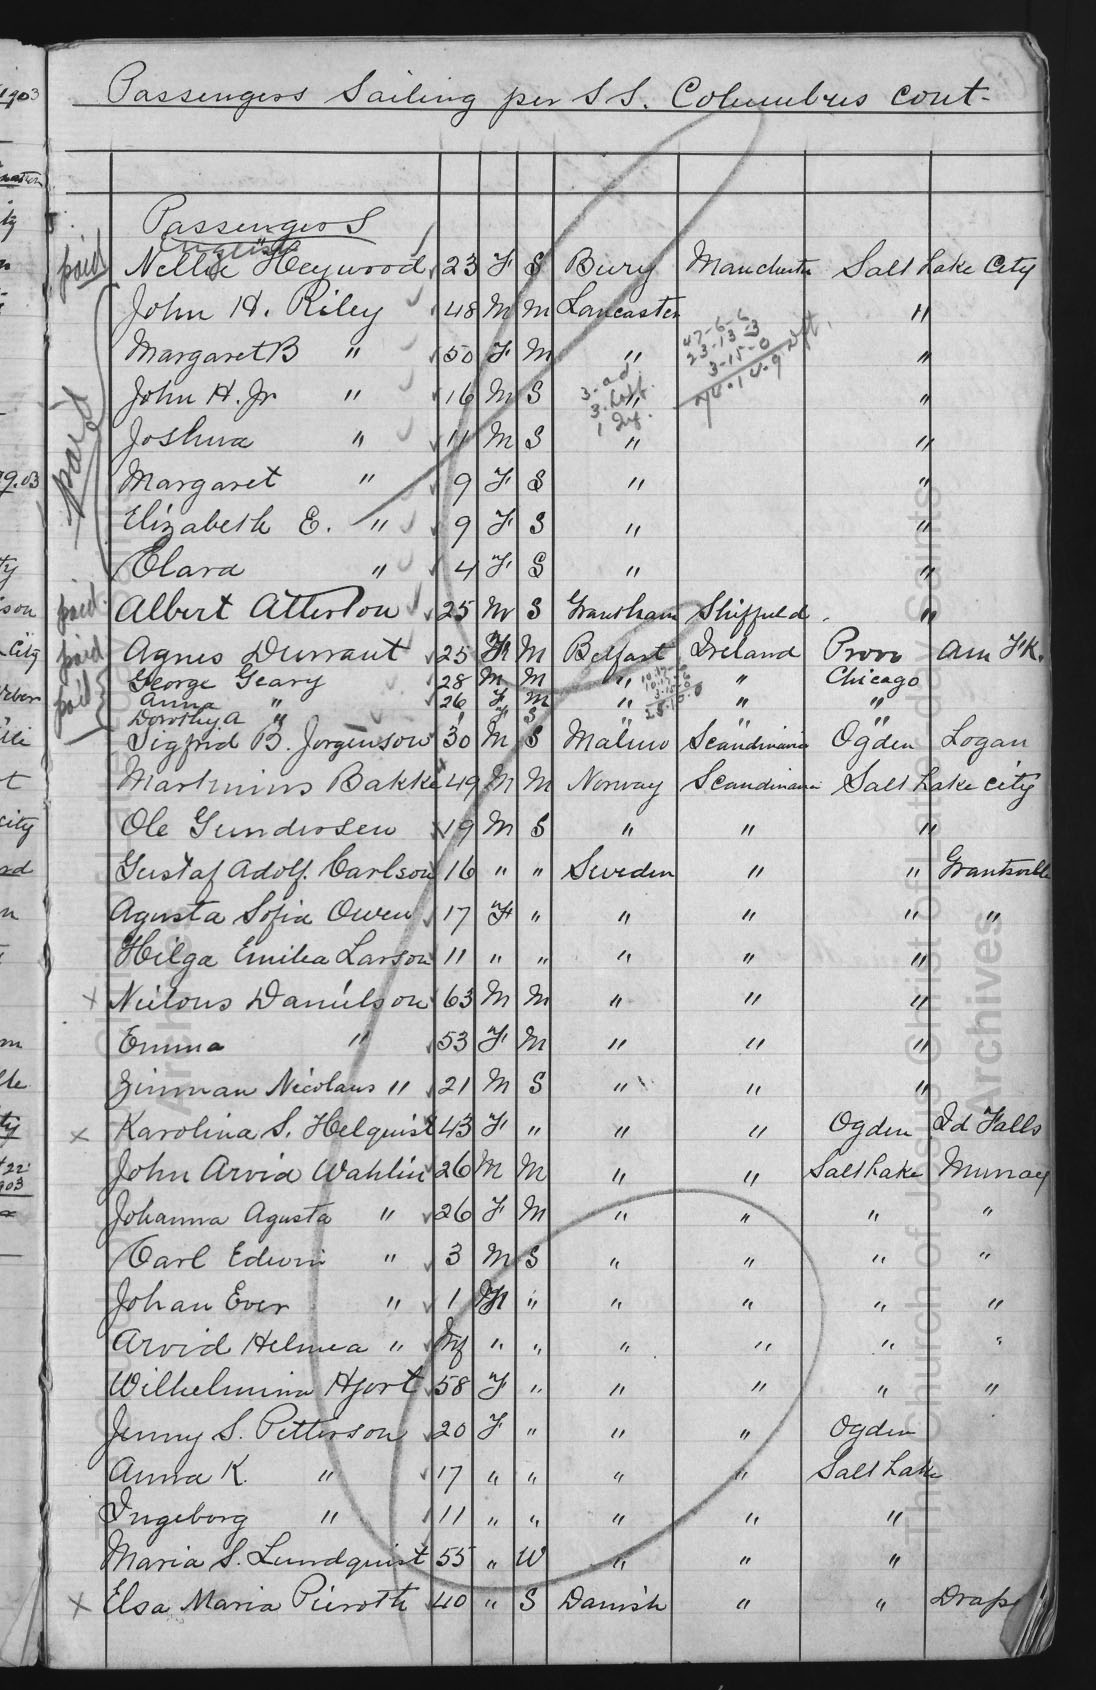 Passengers Sailing per S S. Columbus cont-
Passengers
English
paid Nellie Heywood 23 F S Bury Manchester Salt Lake City
John H. Riley 48 M M Lancaster "
Margaret B " 50 F M " "
John H. Jr " 16 M S " "
Joshua " 11 M S " "
paid Margaret " 9 F S " "
Elizabeth E. " 9 F S " "
Clara " 4 F S " "
47-6-6
23-13-3
3-15-0
74.14.9
3. ad
3. half.
1 Inf.
paid Albert Atterton 25 M S Grantham Sheffield "
paid Agnes Durrant 25 F M Belfast Ireland Provo Am F K.
paid George Geary 28 M M " " Chicago
Anna " 26 F M " " "
Dorothy A " 1 F S " "
Sigfrid B. Jorgenson 30 M S Malmo Scandinavia Ogden Logan
Martinius Bakke 49 M M Norway Scandinavia Salt Lake City
Ole Gunderson 19 M S " " "
Gustaf Adolf. Carlson 16 " " Sweden " " Grantsville
Agusta Sofia Owen 17 F " " " " "
Hilga Emilia Larson 11 " " " " "
x Neilous Danielson 63 M M " " "
Emma " 53 F M " " "
Nicolaus " 21 M S " " "
x Karolina S. Helquist 43 F " " " Ogden Id Falls
John Arvid Wahlin 26 M M " " Salt Lake Murray
Johanna Agusta " 26 F M " " " "
Carl Edwin " 3 M S " " " "
Johan Ever " 1 M " " " " "
Arvid Helmea " Inf " " " " " "
Wilhelmina Hjort 58 F " " " " "
Jenny S. Petterson 20 F " " " Ogden
Anna K. " 17 " " " " Salt Lake
Ingeborg " 11 " " " " "
Maria S. Lundquist 55 " W " " "
x Elsa Maria Pieroth 40 " S Danish " " Drap
The Church of Jesus Christ of Latter-day Saints
Archives